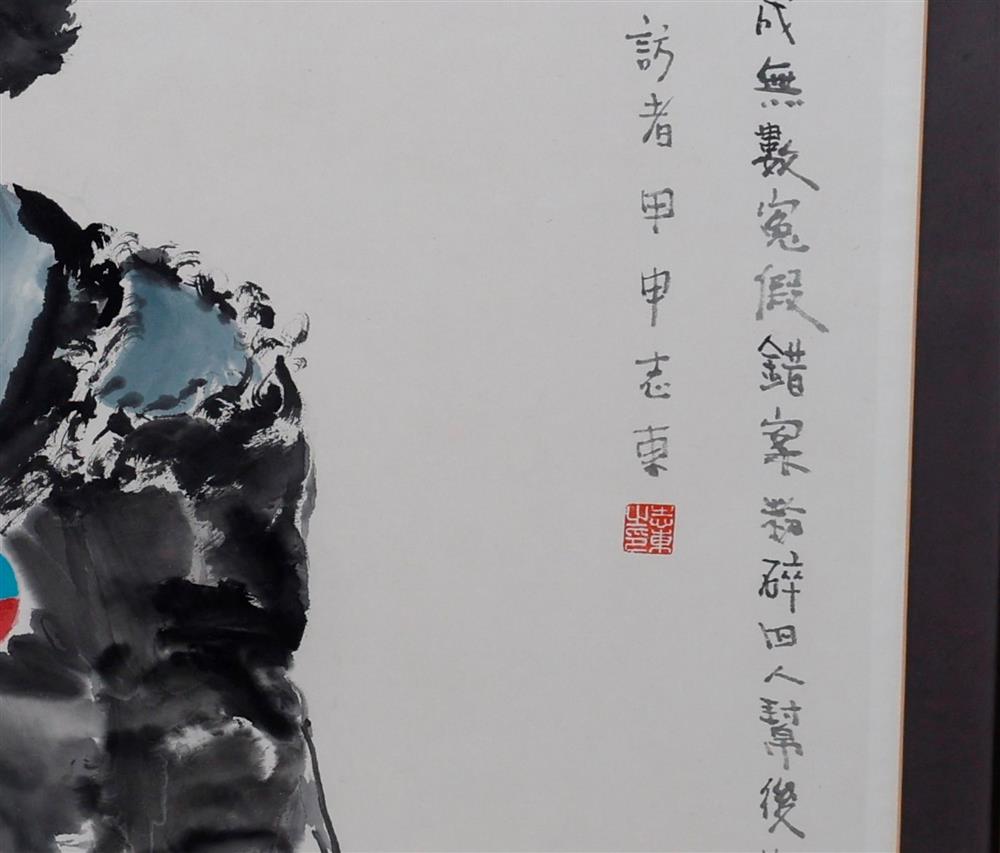 成無數冤假錯案粉碎四人幫後
訪者甲申志東
志東之印